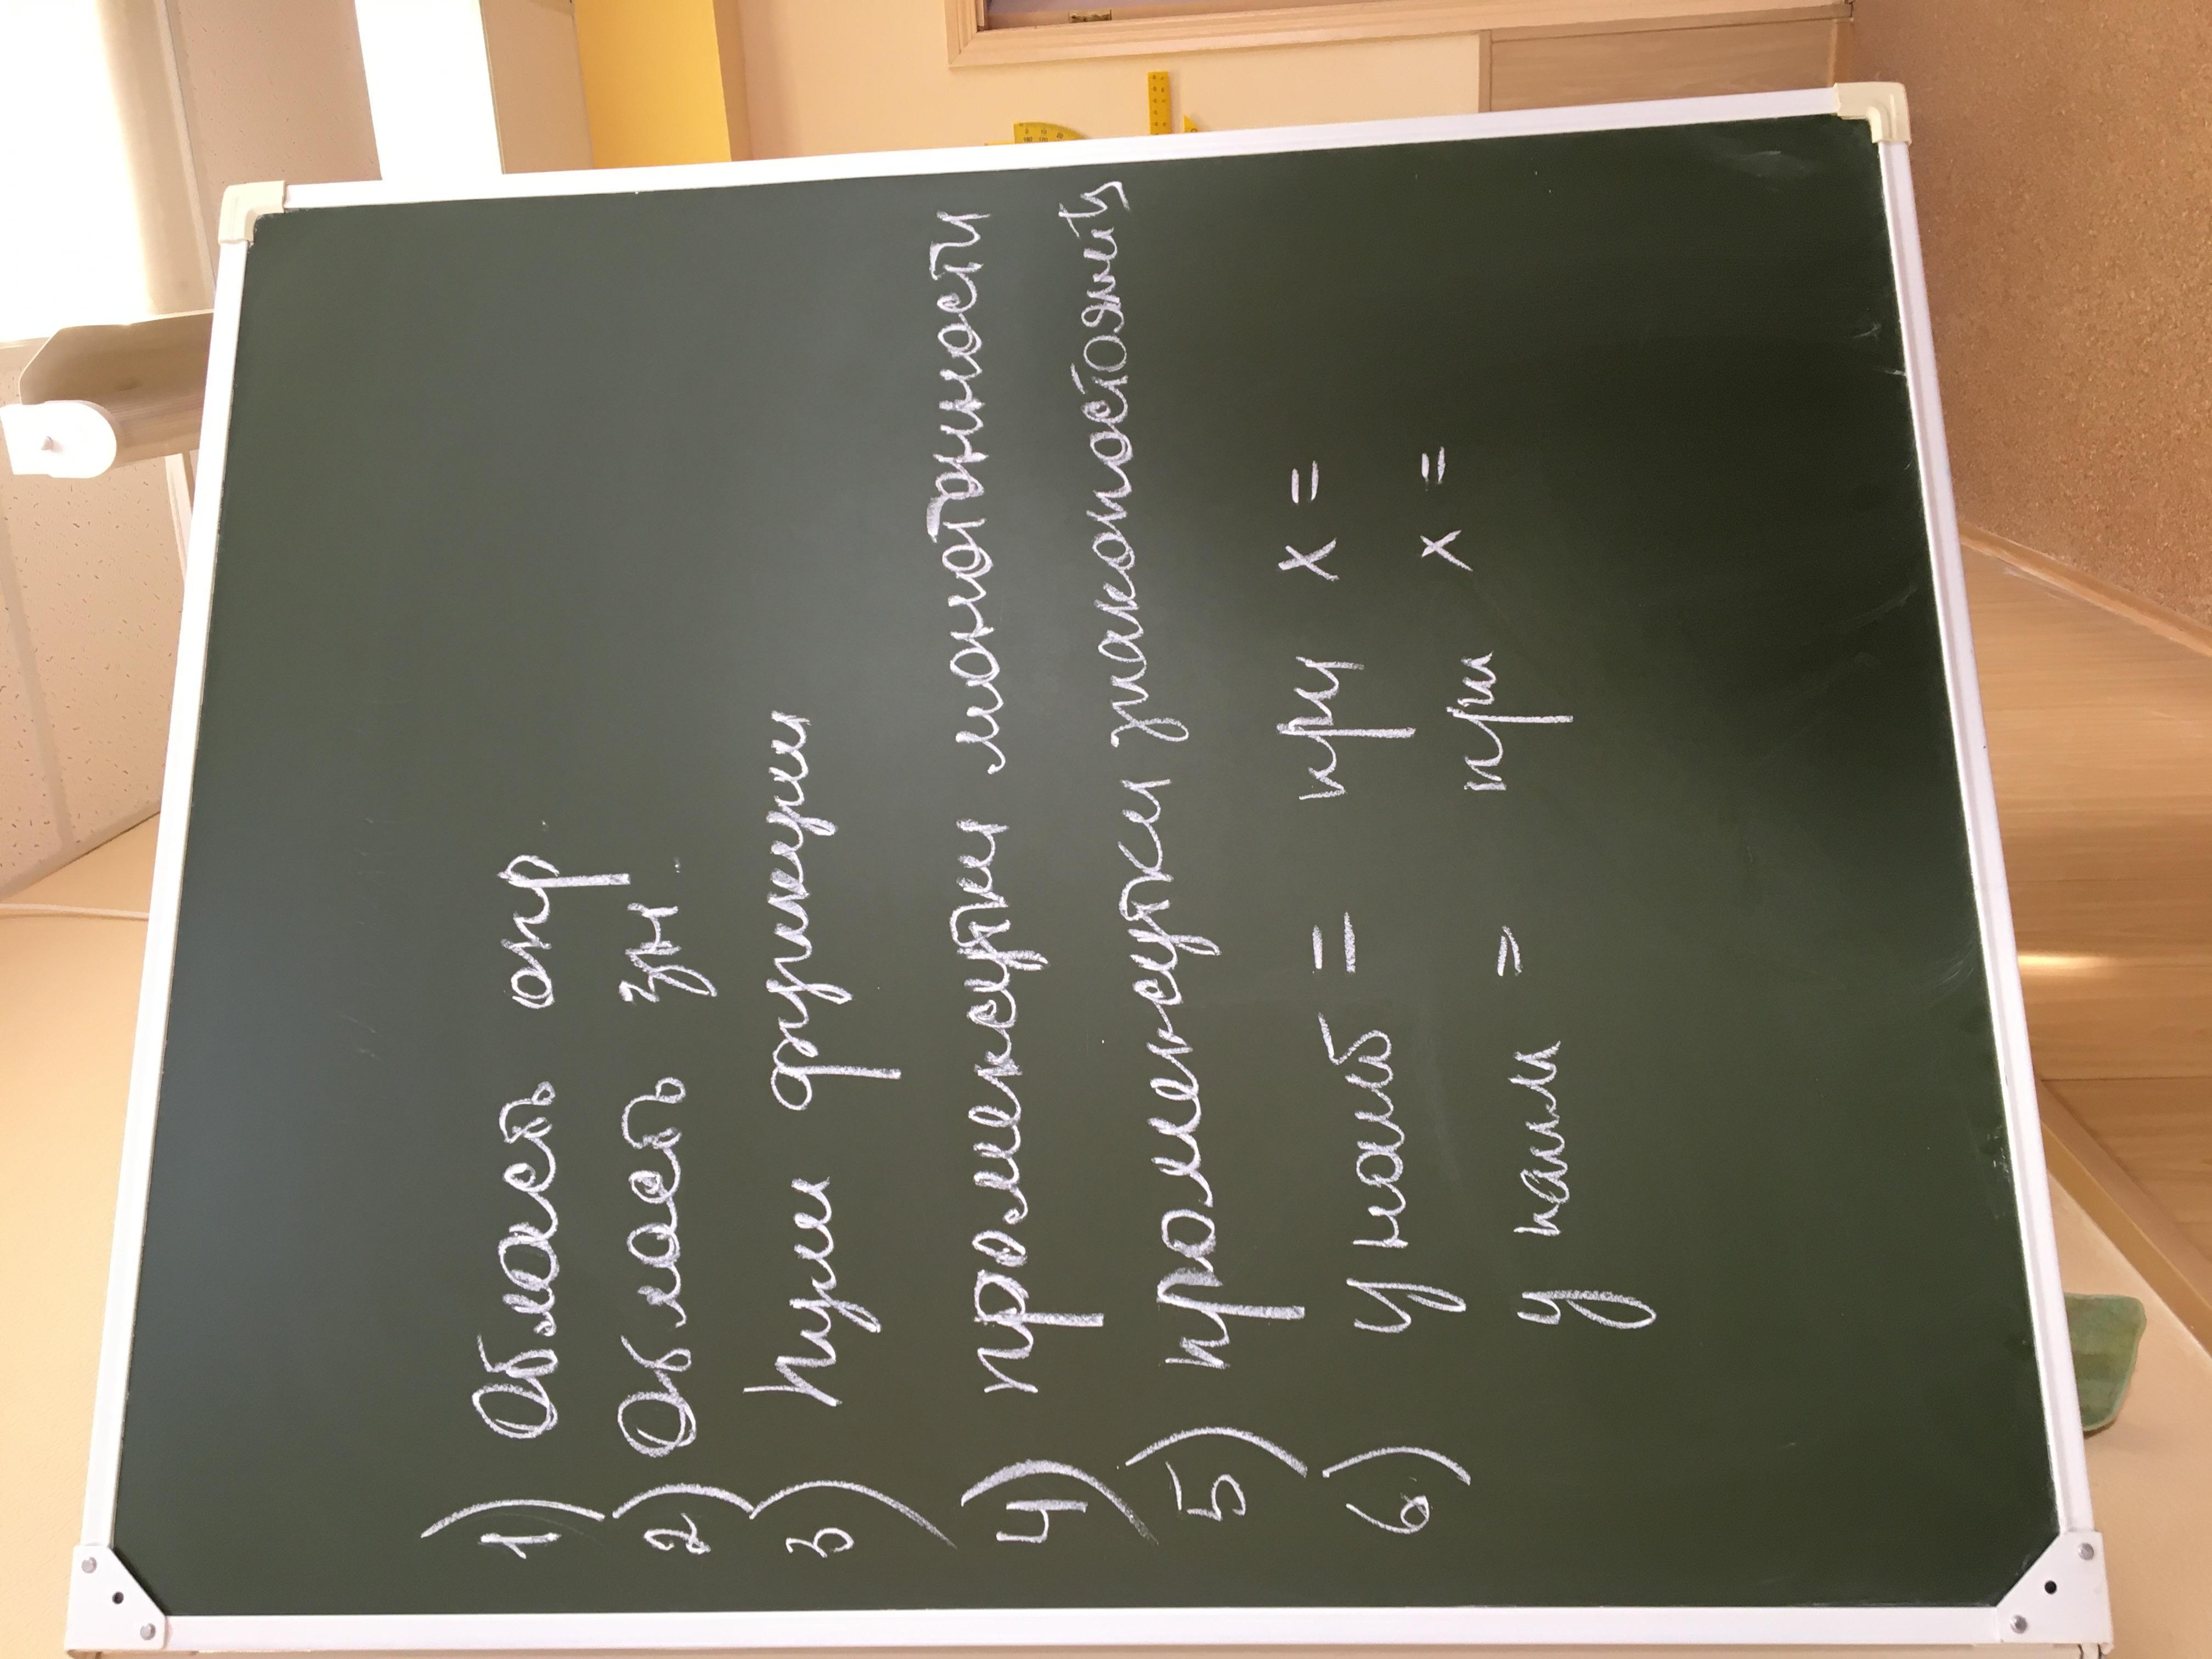 1) Область опр
2) Область зн
3) Нули функции
4) промежутки монотонности
5) промежутки знакопостоянств
6) у наиб = при х =
у наим = при х =